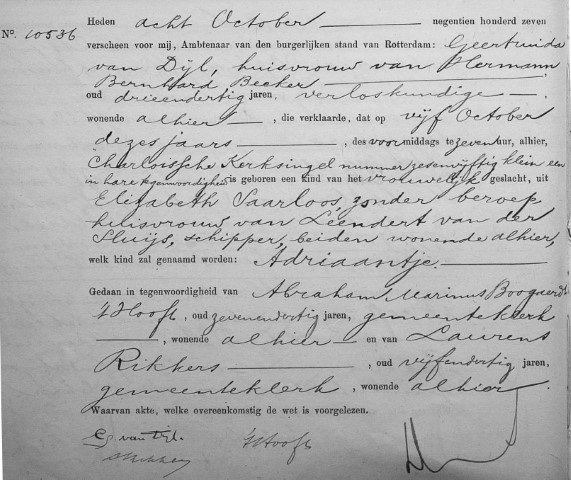 Heden acht October negentien honderd zeven
No. 10536
verscheen voor mij, Ambtenaar van den burgerlijken stand van Rotterdam: Geertruida
van Dijl, huisvrouw van Hermann
Bernhard Becker
oud drieendertig jaren, verloskundige
wonende alhier, die verklaarde, dat op vijf October
dezes jaars, des voormiddags te zeven uur, alhier,
Charloissche Kerksingel nummer zesenvijftig klein een
in hare tegenwoordigheid is geboren een kind van het vrouwelijk geslacht, uit
Elisabeth Saarloos, zonder beroep,
huisvrouw van Leendert van der
Sluijs, schipper, beiden wonende alhier,
welk kind zal genaamd worden: Adriaantje
Gedaan in tegenwoordigheid van Abraham Marinus Boogaerdt
't Hooft, oud zevenendertig jaren, gemeenteklerk
, wonende alhier en van Laurens
Rikkers, oud vijfendertig jaren,
gemeenteklerk, wonende alhier
Waarvan akte, welke overeenkomstig de wet is voorgelezen.
G. van Dijl. 't Hooft
Rikkers